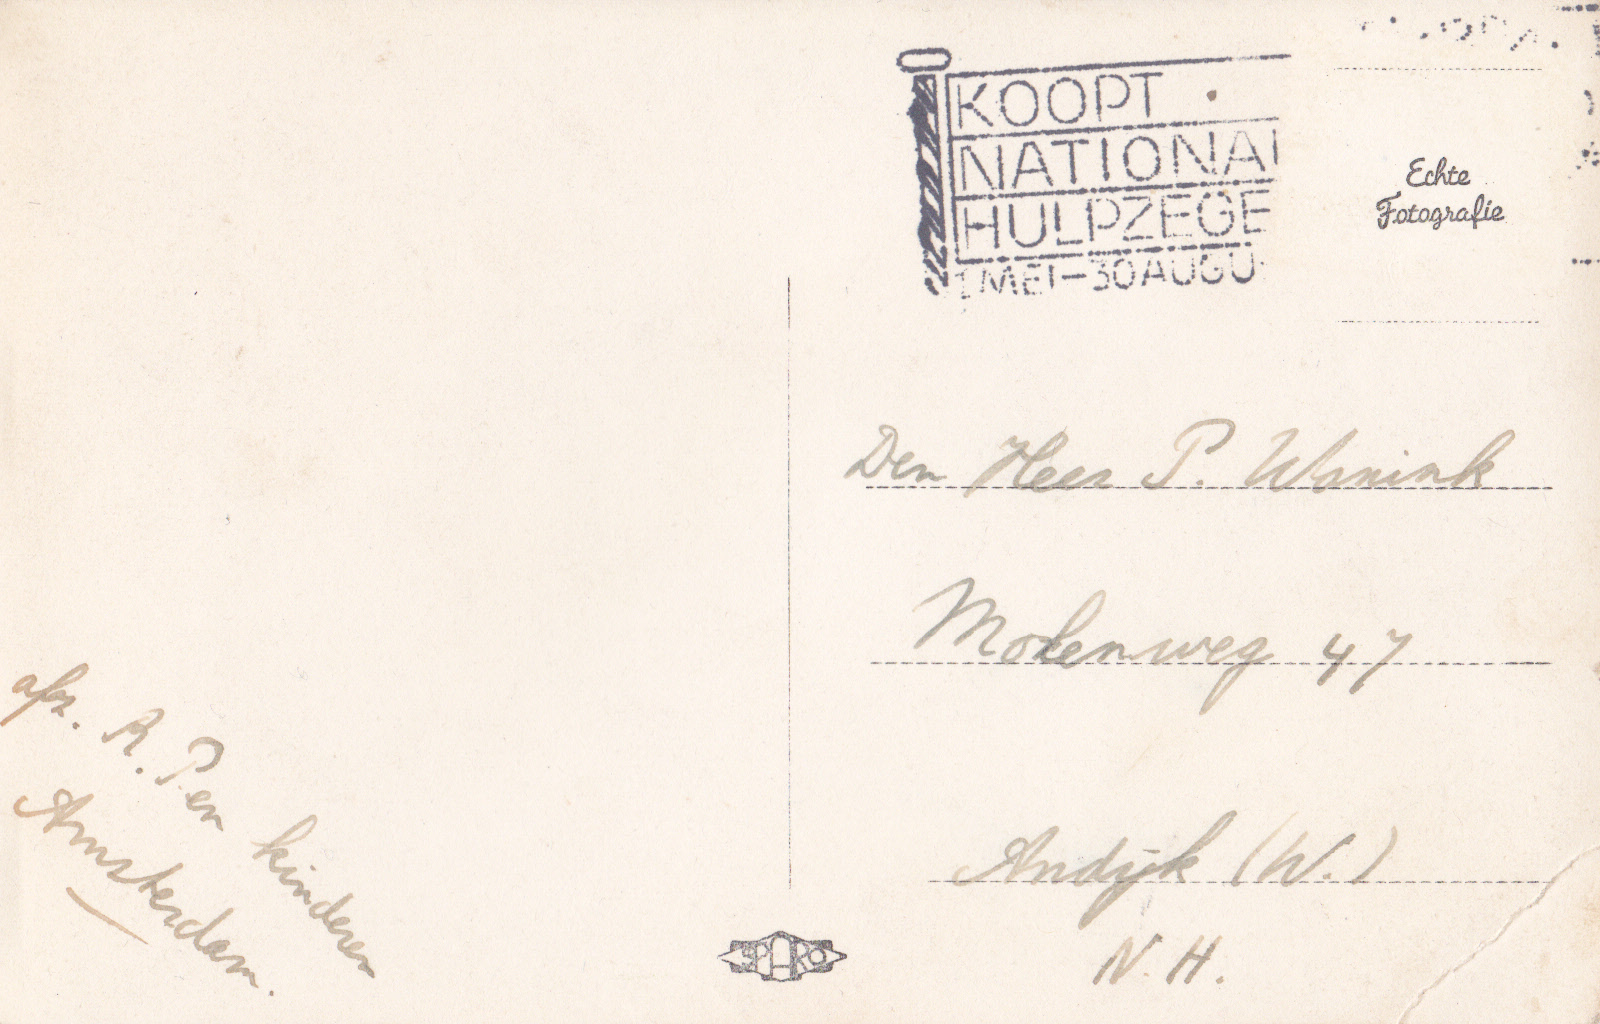 KOOPT
NATIONAL
HULPZEGE
1 MEI-30 AUGU
Echte
Fotografie
Den Heer P. Wanink
Molenweg 47
Andijk (W.)
N.H.
afz. R. P. en kinderen
Amsterdam.
SPARO